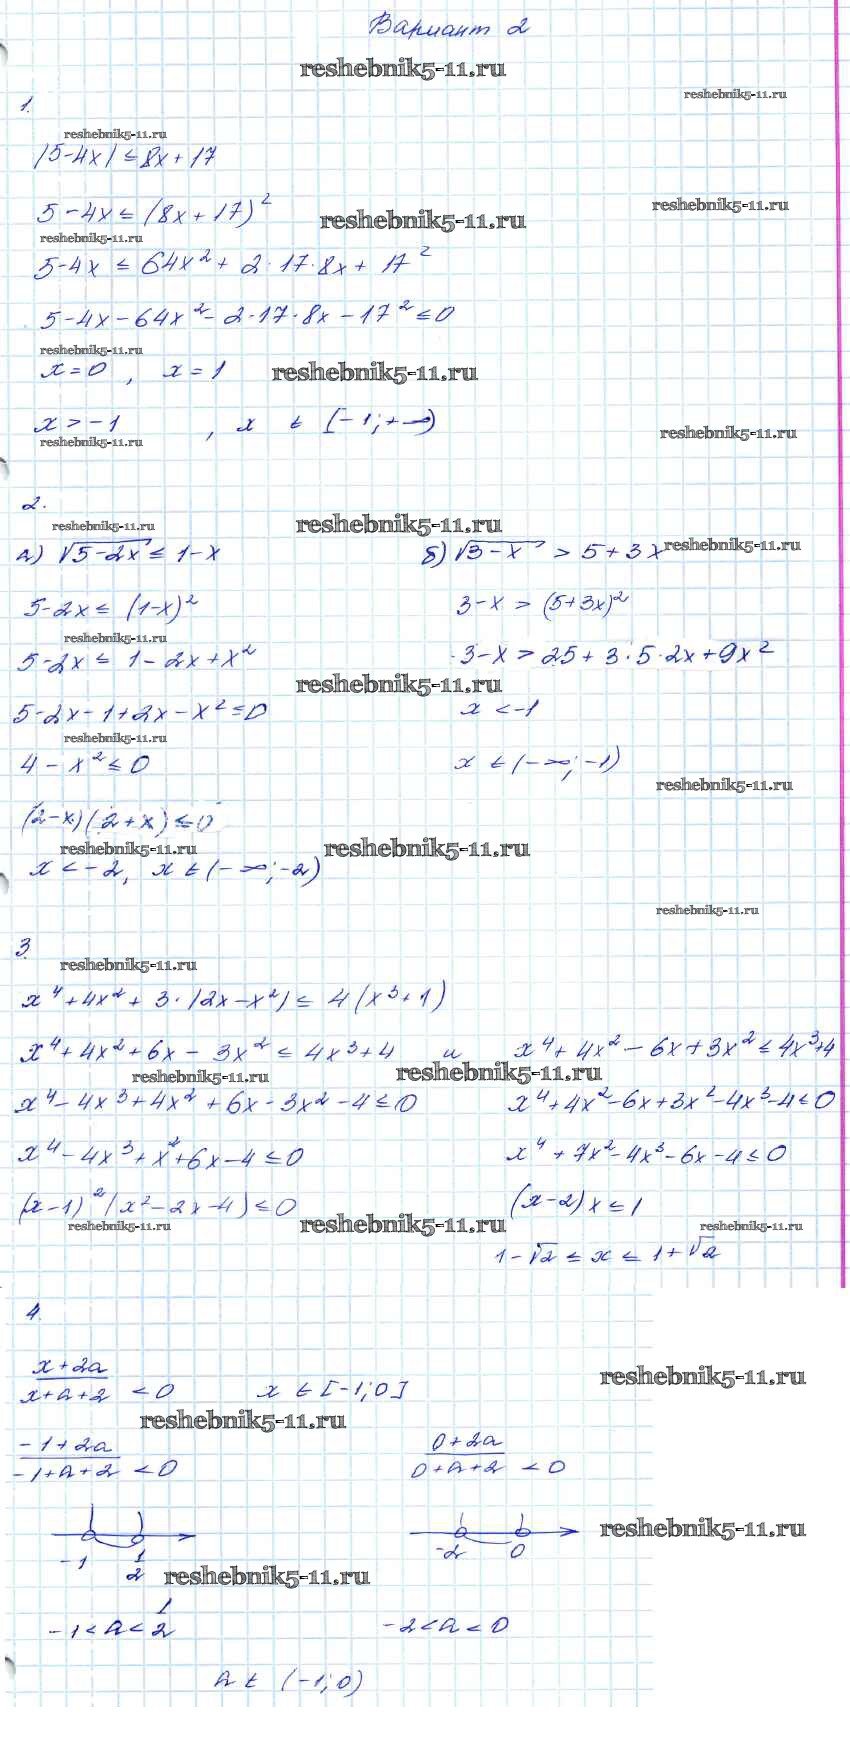 Вариант 2
reshebnik5-11.ru
reshebnik5-11.ru
1.
reshebnik5-11.ru
|5-4x| ≤ 8x+17
5-4x ≤ (8x+17)²
reshebnik5-11.ru
reshebnik5-11.ru
reshebnik5-11.ru
5-4x ≤ 64x² + 2·17·8x + 17²
5-4x-64x²-2·17·8x-17² ≤ 0
reshebnik5-11.ru
x=0, x=1
reshebnik5-11.ru
x > -1, x ∈ [-1;+∞)
reshebnik5-11.ru
reshebnik5-11.ru
2.
reshebnik5-11.ru
reshebnik5-11.ru
а) √5-2x ≤ 1-x
б) √3-x > 5+3x
reshebnik5-11.ru
5-2x ≤ (1-x)²
3-x > (5+3x)²
reshebnik5-11.ru
5-2x ≤ 1-2x+x²
3-x > 25+3·5·2x+9x²
reshebnik5-11.ru
5-2x-1+2x-x² ≤ 0
x < -1
reshebnik5-11.ru
4-x² ≤ 0
x ∈ (-∞;-1)
reshebnik5-11.ru
(2-x)(2+x) ≤ 0
reshebnik5-11.ru
reshebnik5-11.ru
x < -2, x ∈ (-∞;-2)
reshebnik5-11.ru
3.
reshebnik5-11.ru
x⁴+4x²+3·|2x-x²| ≤ 4(x³+1)
x⁴+4x²+6x-3x² ≤ 4x³+4 и x⁴+4x²-6x+3x² ≤ 4x³+4
reshebnik5-11.ru
reshebnik5-11.ru
x⁴-4x³+4x²+6x-3x²-4 ≤ 0
x⁴+4x²-6x+3x²-4x³-4 ≤ 0
x⁴-4x³+x²+6x-4 ≤ 0
x⁴+7x²-4x³-6x-4 ≤ 0
(x-1)²(x²-2x-4) ≤ 0
(x-2)x ≤ 1
reshebnik5-11.ru
reshebnik5-11.ru
reshebnik5-11.ru
1-√2 ≤ x ≤ 1+√2
4.
x+2a
x+a+2 < 0
x ∈ [-1;0]
reshebnik5-11.ru
reshebnik5-11.ru
-1+2a
-1+a+2 < 0
0+2a
0+a+2 < 0
reshebnik5-11.ru
-1 1/2
-2 0
reshebnik5-11.ru
-1<a<1/2
-2<a<0
a ∈ (-1;0)